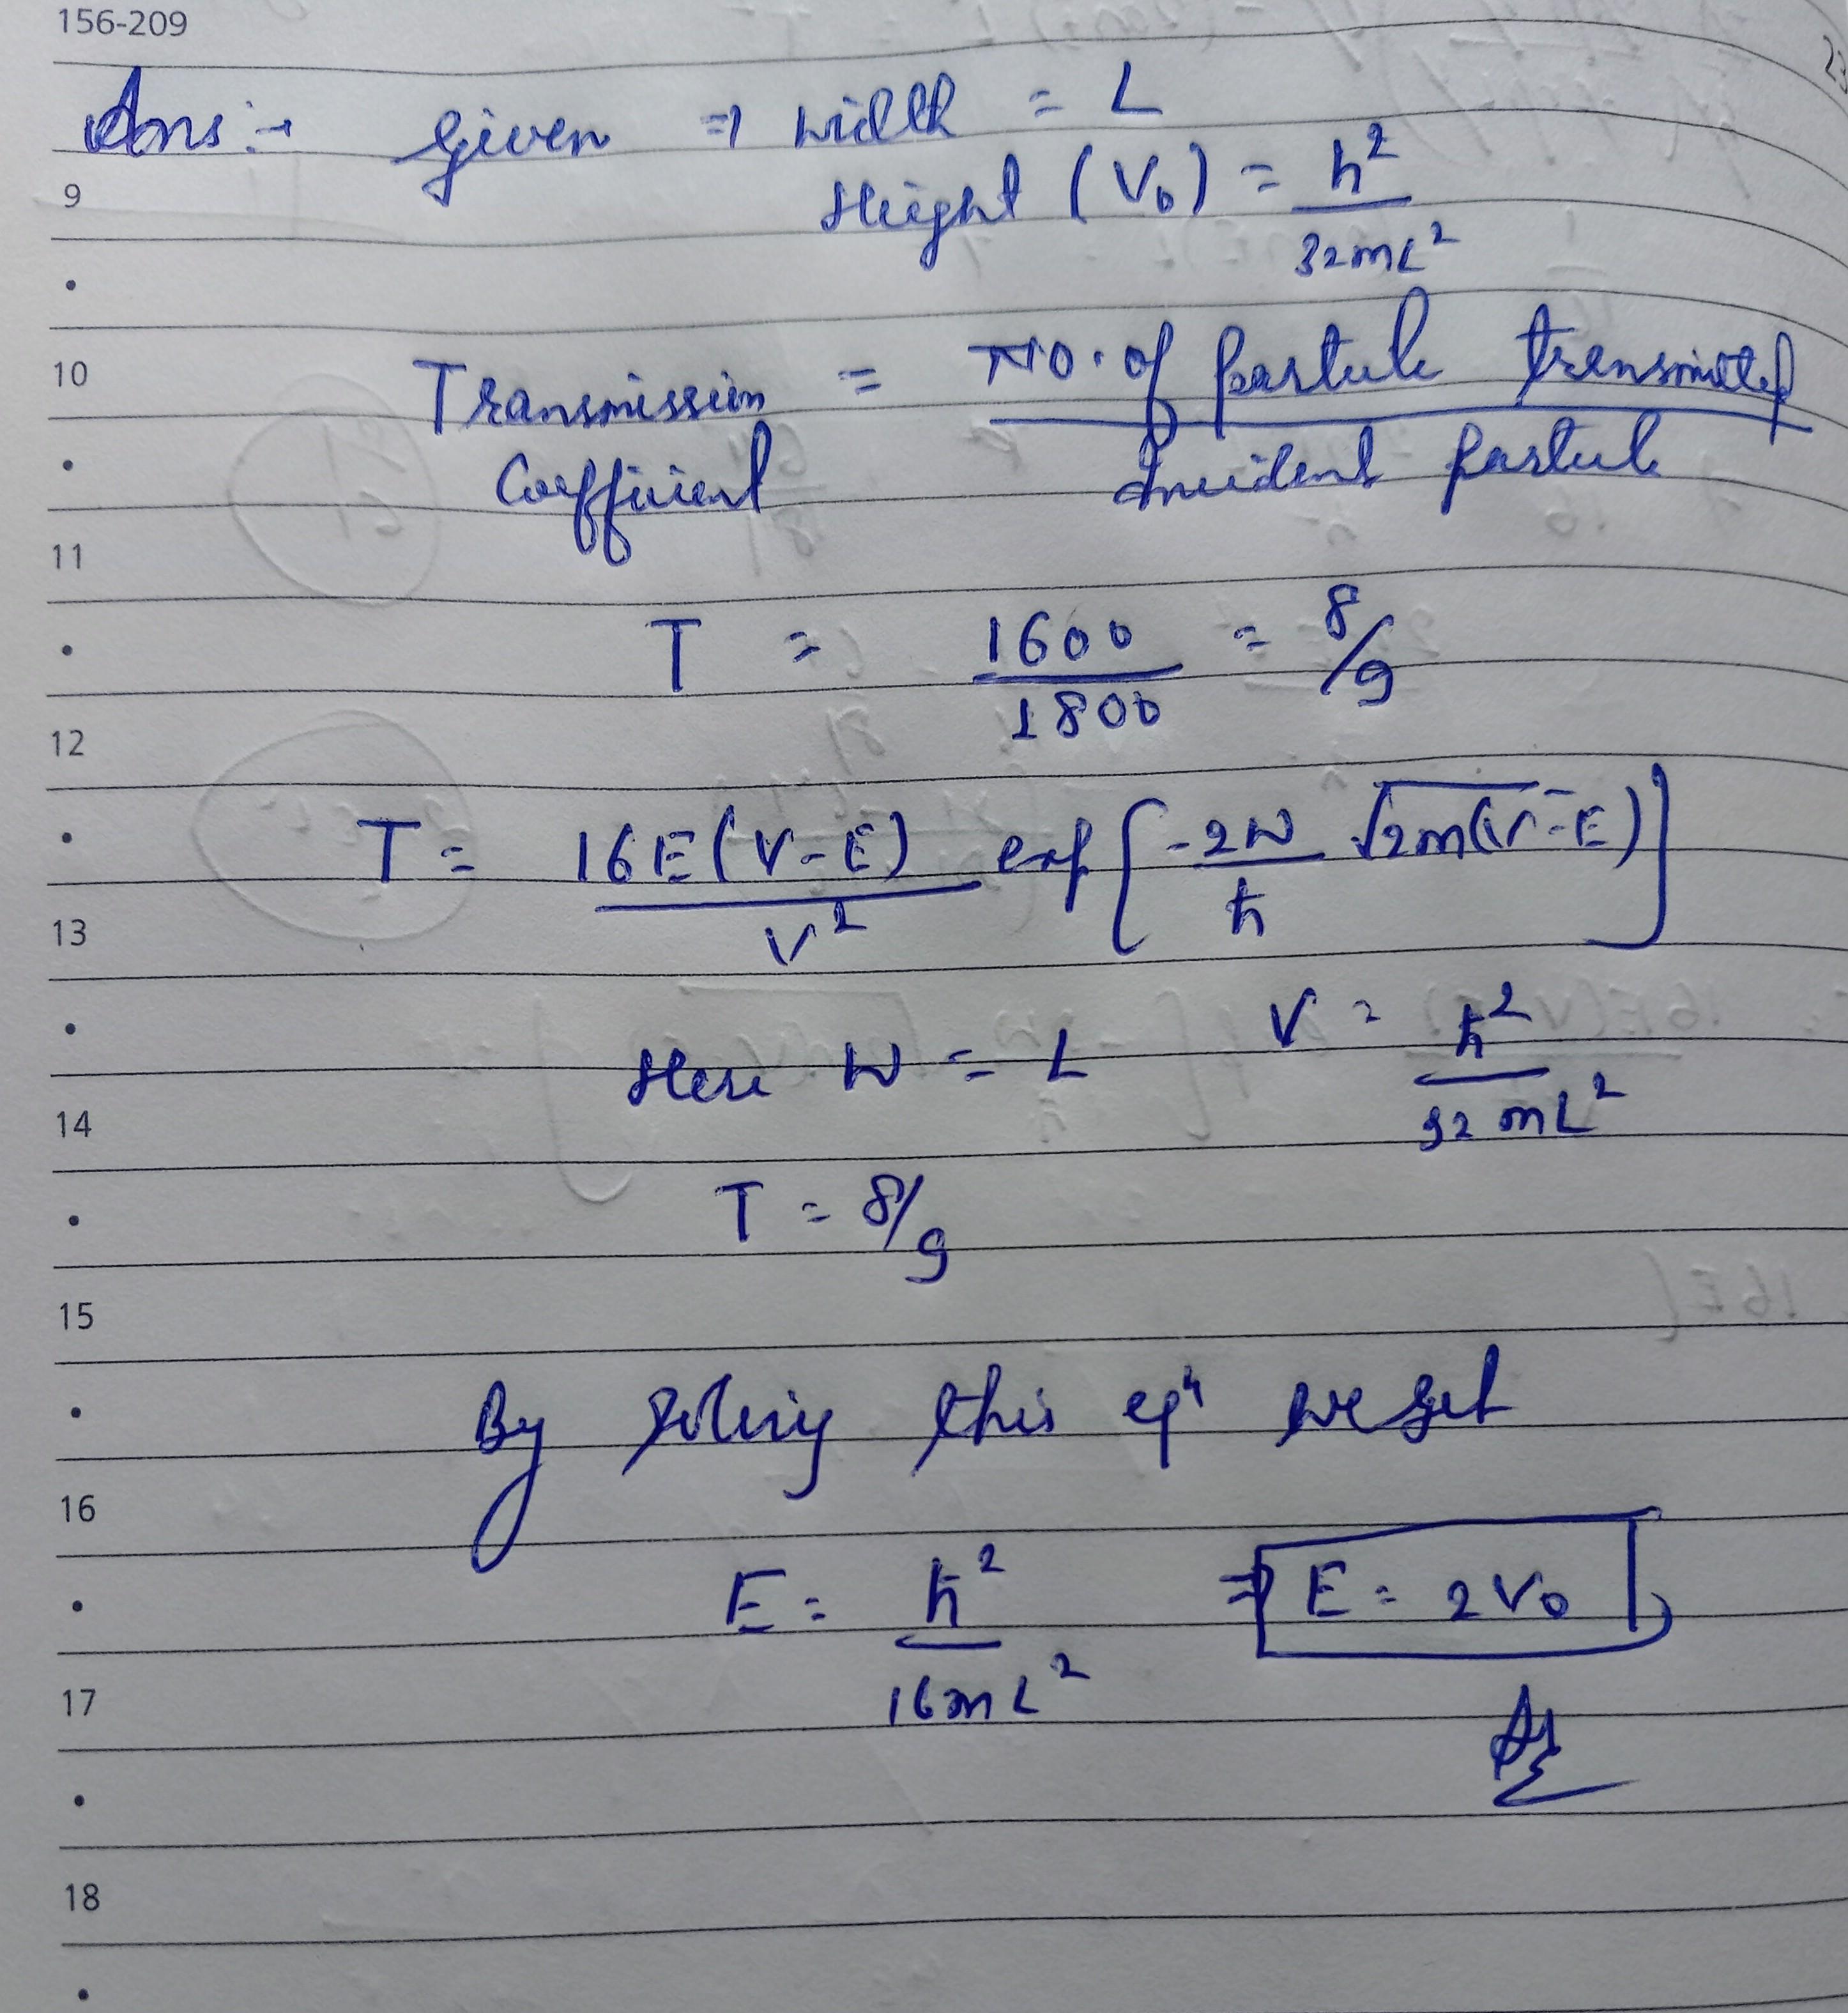 156-209
Ans :→ Given ⇒ width = L
9
Height (V₀) = h² / 32mL²
10
Transmission Coefficient = No. of particle transmitted / Incident particle
11
T = 1600 / 1800 = 8/9
12
T = 16E(V-E) / V² exp[-2W / ħ √2m(V-E)]
13
Here W = L V = ħ² / 32mL²
14
T = 8/9
15
By solving this eqⁿ we get
16
E = ħ² / 16mL² ⇒ E = 2V₀
17
18